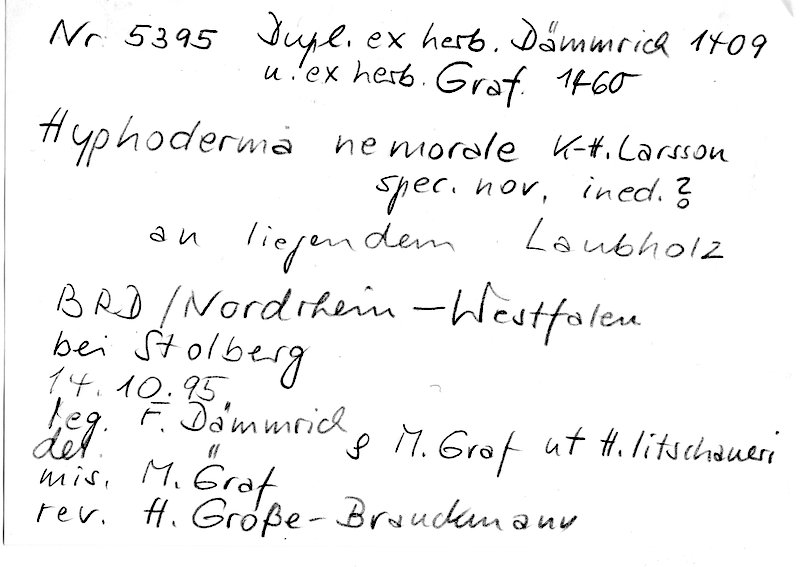 Nr 5395 Dupl. ex herb. Dämmrich 1409
u. ex herb. Graf. 1460
Hyphoderma nemorale K-H. Larsson
spec. nov. ined.?
an liegendem Laubholz
BRD / Nordrhein - Westfalen
bei Stolberg
14. 10. 95
leg. F. Dämmrich
det. " & M. Graf ut H. litschaueri
mis. M. Graf
rev. H. Große-Brauckmann